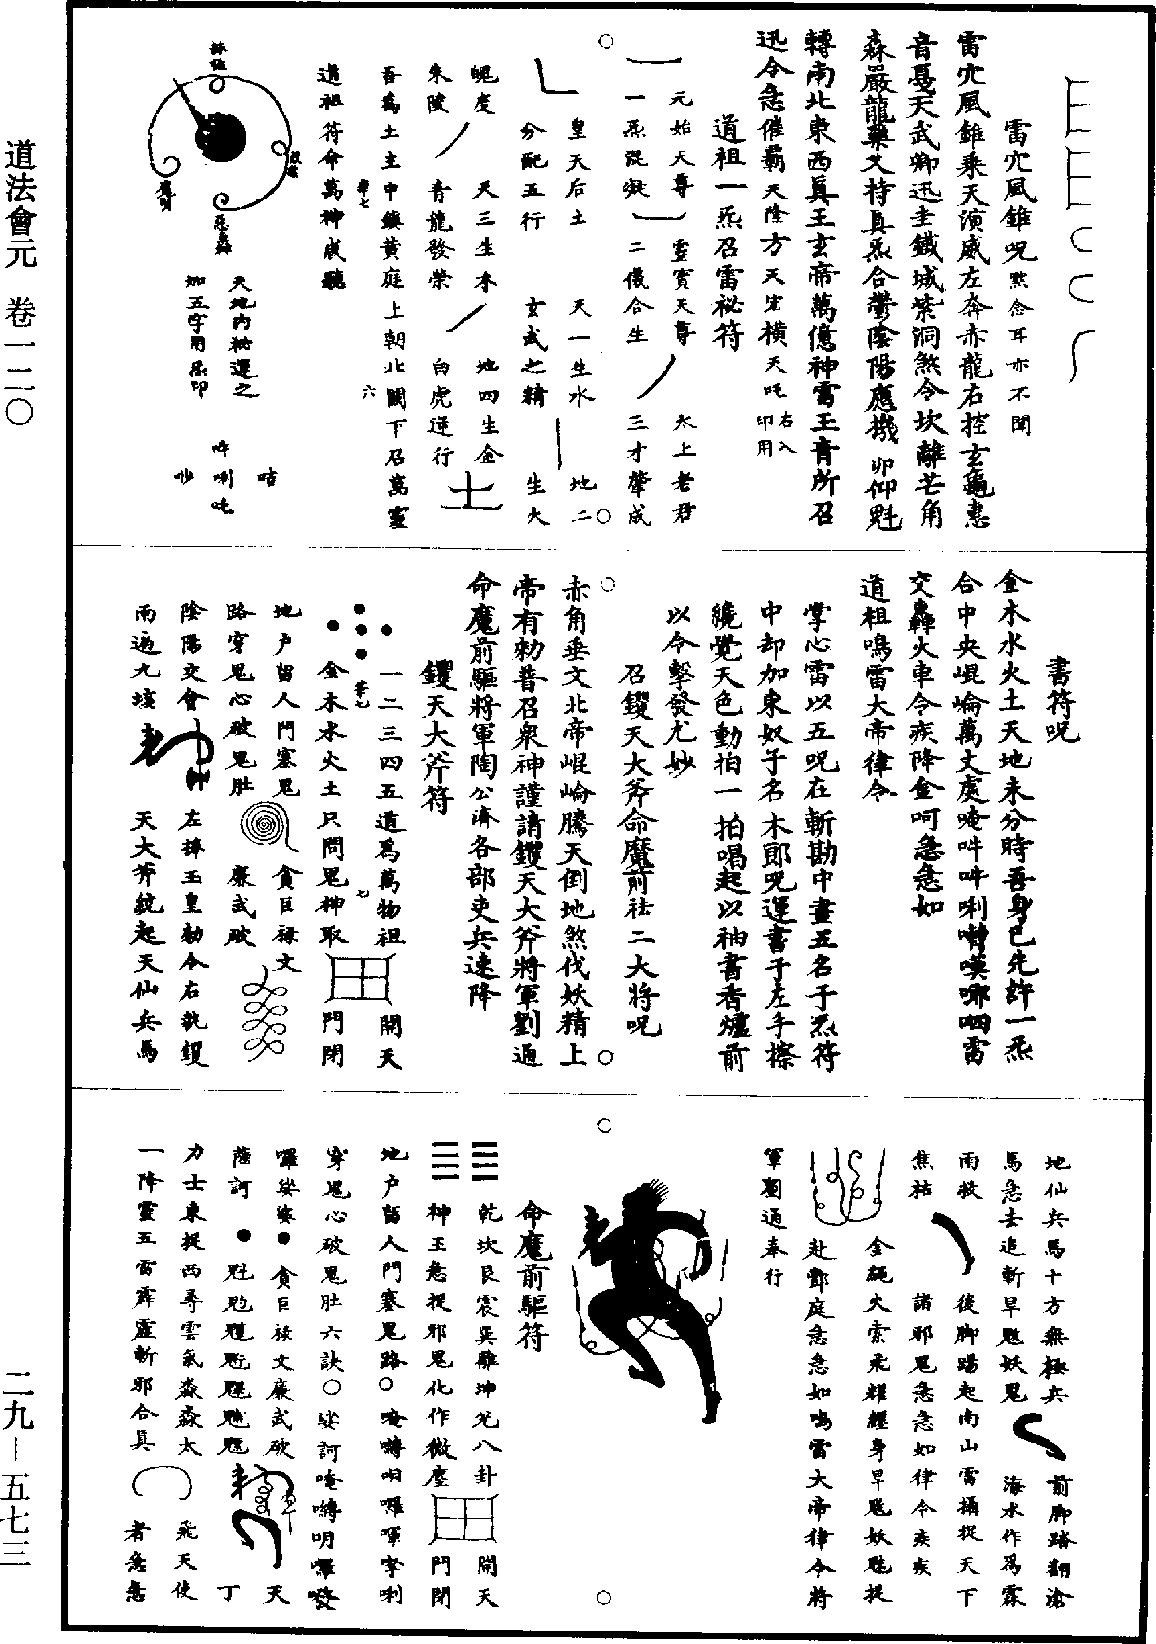 道法會元 卷一二〇
二九—五七三
雷穴風錐呪默念耳亦不聞
雷穴風錐乘天演威左奔赤龍右控玄龜惠
音戛天武卿迅圭鐵城紫洞煞令坎離芒角
森嚴龍藥文持真炁合鬱陰陽應機卯仰魁
轉南北東西真王玄帝萬億神雷王音所召
迅令急催霸天隆方天宏横天吒右入印用
道祖一炁召雷祕符
元始天尊 靈寶天尊 太上老君
一炁混凝 二儀合生 三才肇成
皇天后土 天一生水 地二
分配五行 玄武之精 生火
崐度 天三生木 地四生金
朱陵 青龍發榮 白虎運行 土
吾為土主中鎮黃庭上朝北闕下召萬靈
道祖符命萬神咸聽
天地内祕運之
如五字用局印
咭
吽唎吒
吵
書符呪
金木水火土天地未分時吾身已先許一炁
合中央崐崘萬丈虔唵吽吽唎囀嘆哪呬雷
交轟火車令疾降金呵急急如
道祖鳴雷大帝律令
掌心雷以五呪在斬勘中畫五名于炁符
中却加東奴子名木郎呪運書于左手擦
纔覺天色動拍一拍喝起以袖書香爐前
以令擊發尤妙
召钁天大斧命魔前袪二大將呪
赤角垂文北帝崐崘騰天倒地煞伐妖精上
帝有勑普召衆神謹請钁天大斧將軍劉通
命魔前驅將軍陶公濟各部吏兵速降
钁天大斧符
一二三四五道為萬物祖 開天
金木水火土只問鬼神取 門閉
地户留人門塞鬼 貪巨祿文
路穿鬼心破鬼肚 廉武破
陰陽交會 左捧玉皇勑令右執钁
雨遍九垓 天大斧統起天仙兵馬
地仙兵馬十方無極兵 前脚踏翻滄
馬急去追斬旱魃妖鬼 海水作為霖
雨救 後脚踢起南山雷攝捉天下
焦枯 諸邪鬼急急如律令疾疾
金繩火索飛繯纒身旱魃妖魃捉
赴酆庭急急如鳴雷大帝律令將
軍劉通奉行
命魔前驅符
乾坎艮震巽離坤兌八卦 開天
神王急捉邪鬼化作微塵 門閉
地户留人門塞鬼路〇唵囀呬囉啴字唎
穿鬼心破鬼肚六訣〇娑訶唵囀明囉娑
囉娑婆 貪巨祿文廉武破 天
薩訶 魁𩲃魓䰢魒 丁
力士東捉西尋雲氣森森太 飛天使
一降靈五雷霹靂斬邪合真 者急急